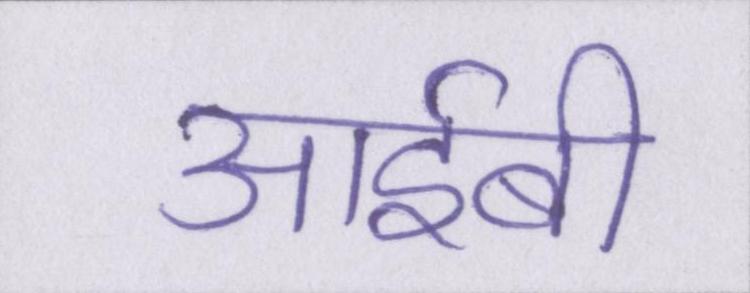 आईबी